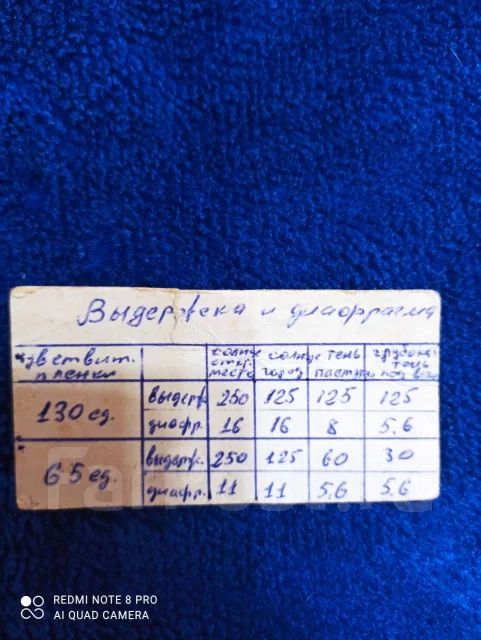 Выдержка и диафрагма
чувствит. пленки
солнце откр. место
солнце город
тень
130 ед.
выдерж. 250 125 125 125
диафр. 16 16 8 5.6
65 ед.
выдерж. 250 125 60 30
диафр. 11 11 5.6 5.6
REDMI NOTE 8 PRO
AI QUAD CAMERA